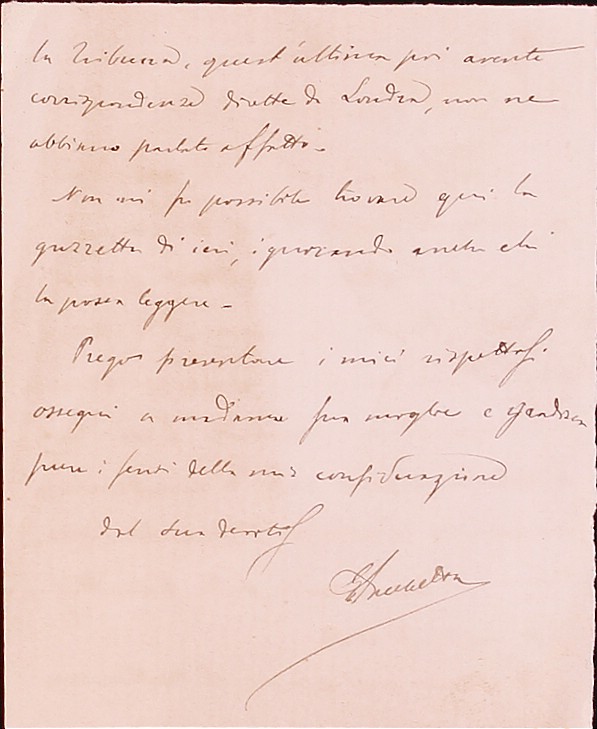 la Tribuna, quest'ultima poi avente
corrispondenze dirette da Londra, non ne
abbiano parlato affatto.
Non mi fu possibile trovare qui la
gazzetta di ieri, ignorando anche chi
la possa leggere.
Prego presentare i miei rispettosi
ossequi a madame sua moglie e gradisca
pure i sensi della mia considerazione
dal suo devotis